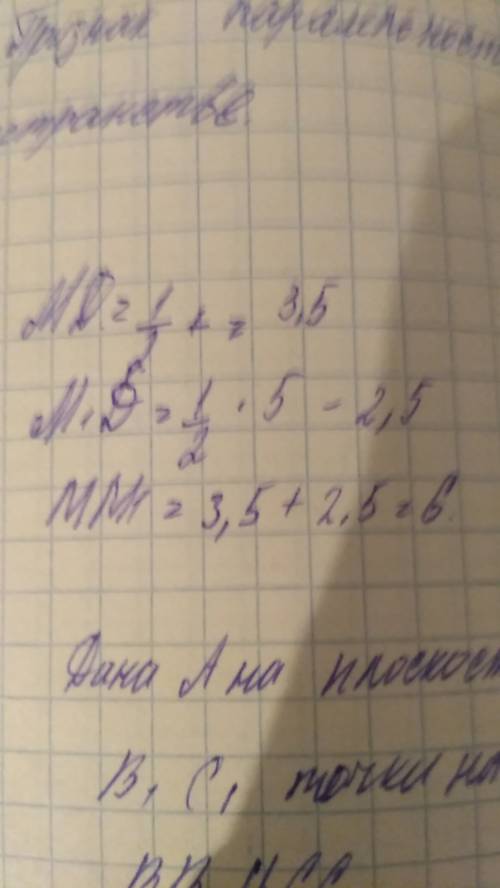 Признак паралельност
странстве.
MD = 1/2 + = 3,5
M₁D = 1/2 · 5 - 2,5
MM₁ = 3,5 + 2,5 = 6
Дана A на плоскост
B₁ C₁ точки на